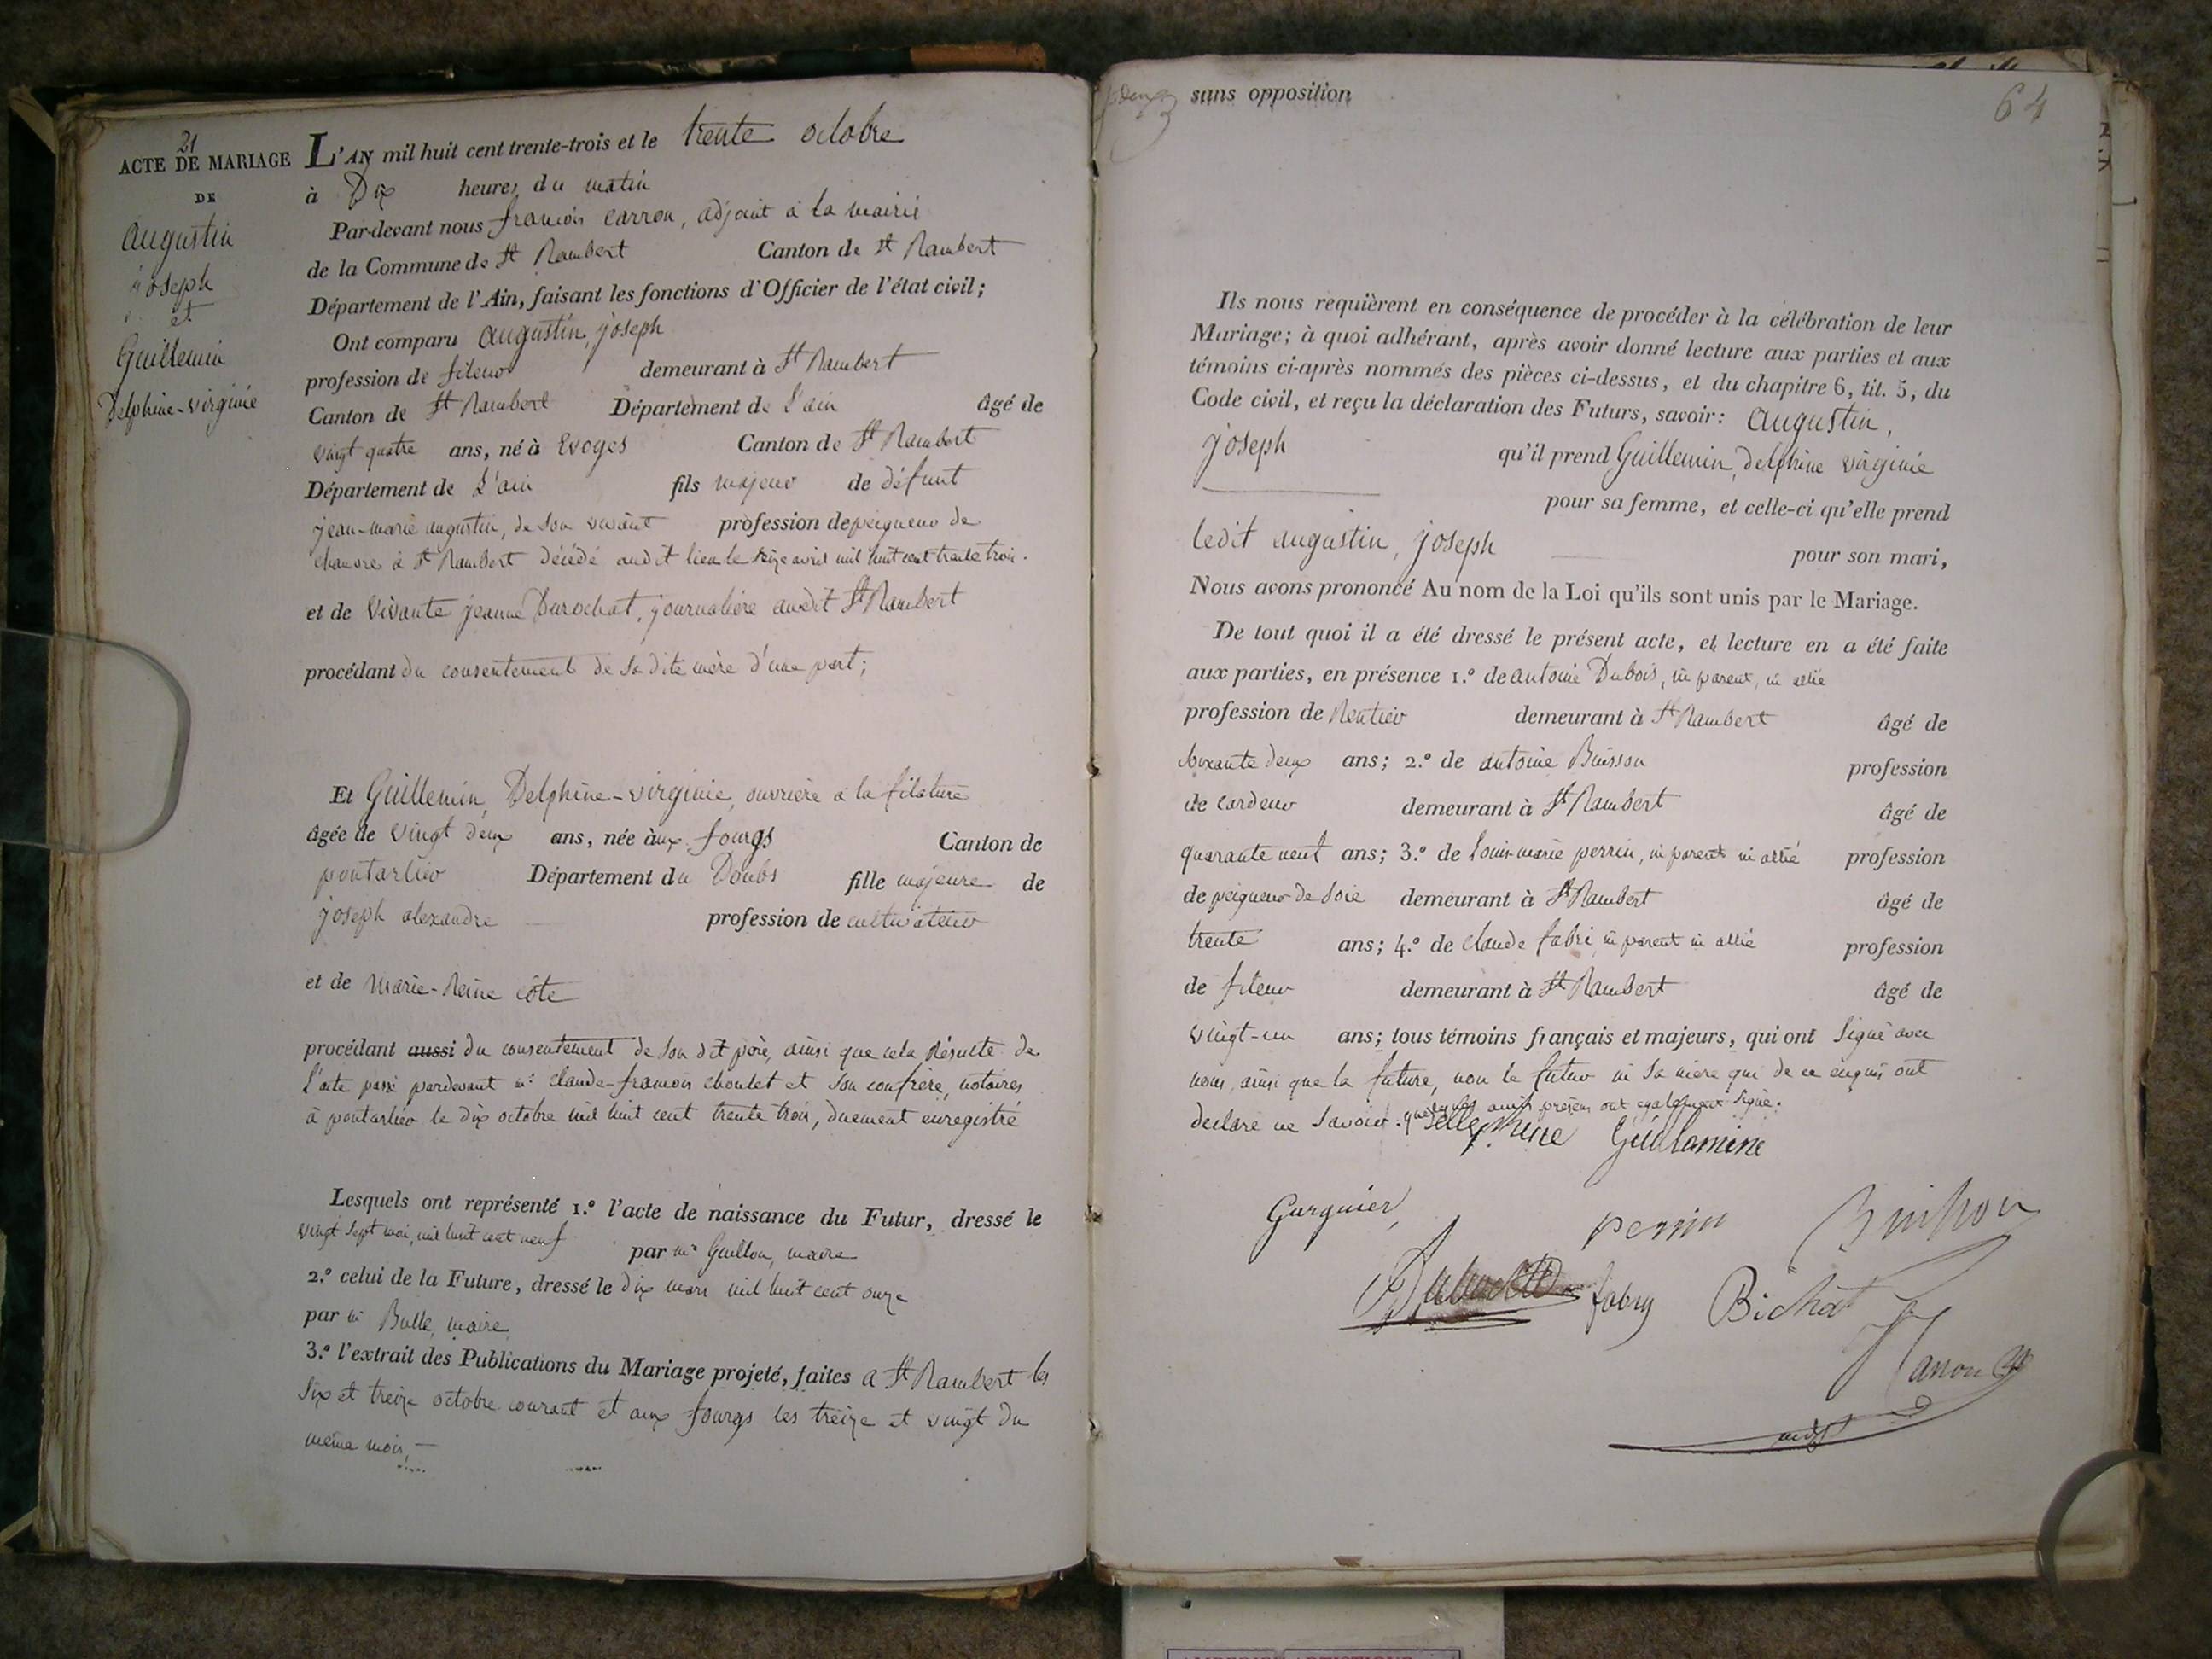 21
ACTE DE MARIAGE
DE
augustin
joseph
et
Guillemin
Delphine-virginie
L'AN mil huit cent trente-trois et le trente octobre
à Dix heures du matin
Par-devant nous françois carron, adjoint à la mairie
de la Commune de St Rambert Canton de st Rambert
Département de l'Ain, faisant les fonctions d'Officier de l'état civil;
Ont comparu augustin, joseph
profession de fileur demeurant à St Rambert
Canton de St Rambert Département de L'ain âgé de
vingt quatre ans, né à Evoges Canton de St Rambert
Département de L'ain fils majeur de défunt
jean-marie augustin, de son vivant profession de peigneur de
chanvre à St Rambert décédé audit lieu le seize avril mil huit cent trente trois.
et de vivante jeanne Durochat, journalière audit St Rambert
procédant du consentement de sa dite mère d'une part;
Et Guillemin, Delphine-virginie, ouvrière à la filature
âgée de vingt deux ans, née à ux fourgs Canton de
pontarlier Département du Doubs fille majeure de
joseph alexandre profession de cultivateur
et de Marie-Reine côte
procédant aussi du consentement de son dit père, ainsi que cela Résulte de
l'acte passé pardevant me claude-françois choulet et son confrère, notaires
à pontarlier le dix octobre mil huit cent trente trois, duement enregistré
Lesquels ont représenté 1.º l'acte de naissance du Futur, dressé le
vingt sept mai, mil huit cent neuf par mr Guillon, maire
2.º celui de la Future, dressé le dix mars mil huit cent onze
par mr Bulle, maire
3.º l'extrait des Publications du Mariage projeté, faites a St Rambert les
six et treize octobre courant et aux fourgs les treize et vingt du
même mois,
sans opposition
64
Ils nous requièrent en conséquence de procéder à la célébration de leur
Mariage; à quoi adhérant, après avoir donné lecture aux parties et aux
témoins ci-après nommés des pièces ci-dessus, et du chapitre 6, tit. 5, du
Code civil, et reçu la déclaration des Futurs, savoir: augustin,
joseph qu'il prend Guillemin, delphine virginie
pour sa femme, et celle-ci qu'elle prend
ledit augustin, joseph pour son mari,
Nous avons prononcé Au nom de la Loi qu'ils sont unis par le Mariage.
De tout quoi il a été dressé le présent acte, et lecture en a été faite
aux parties, en présence 1.º de antoine Dubois, ni parent, ni allié
profession de Rentier demeurant à St Rambert âgé de
soixante deux ans; 2.º de antoine Buisson profession
de cardeur demeurant à St Rambert âgé de
quarante neuf ans; 3.º de Louis-marie perrin, ni parent ni allié profession
de peigneur de soie demeurant à St Rambert âgé de
trente ans; 4.º de claude fabri, ni parent ni allié profession
de fileur demeurant à St Rambert âgé de
vingt-un ans; tous témoins français et majeurs, qui ont signé avec
nous, ainsi que la future, non le futur ni sa mère qui de ce enquis ont
déclaré ne savoir. quelques amis présens ont également signé.
delphine Guilamine
Gurgnier
perrin
Buisson
fabry
Bichat